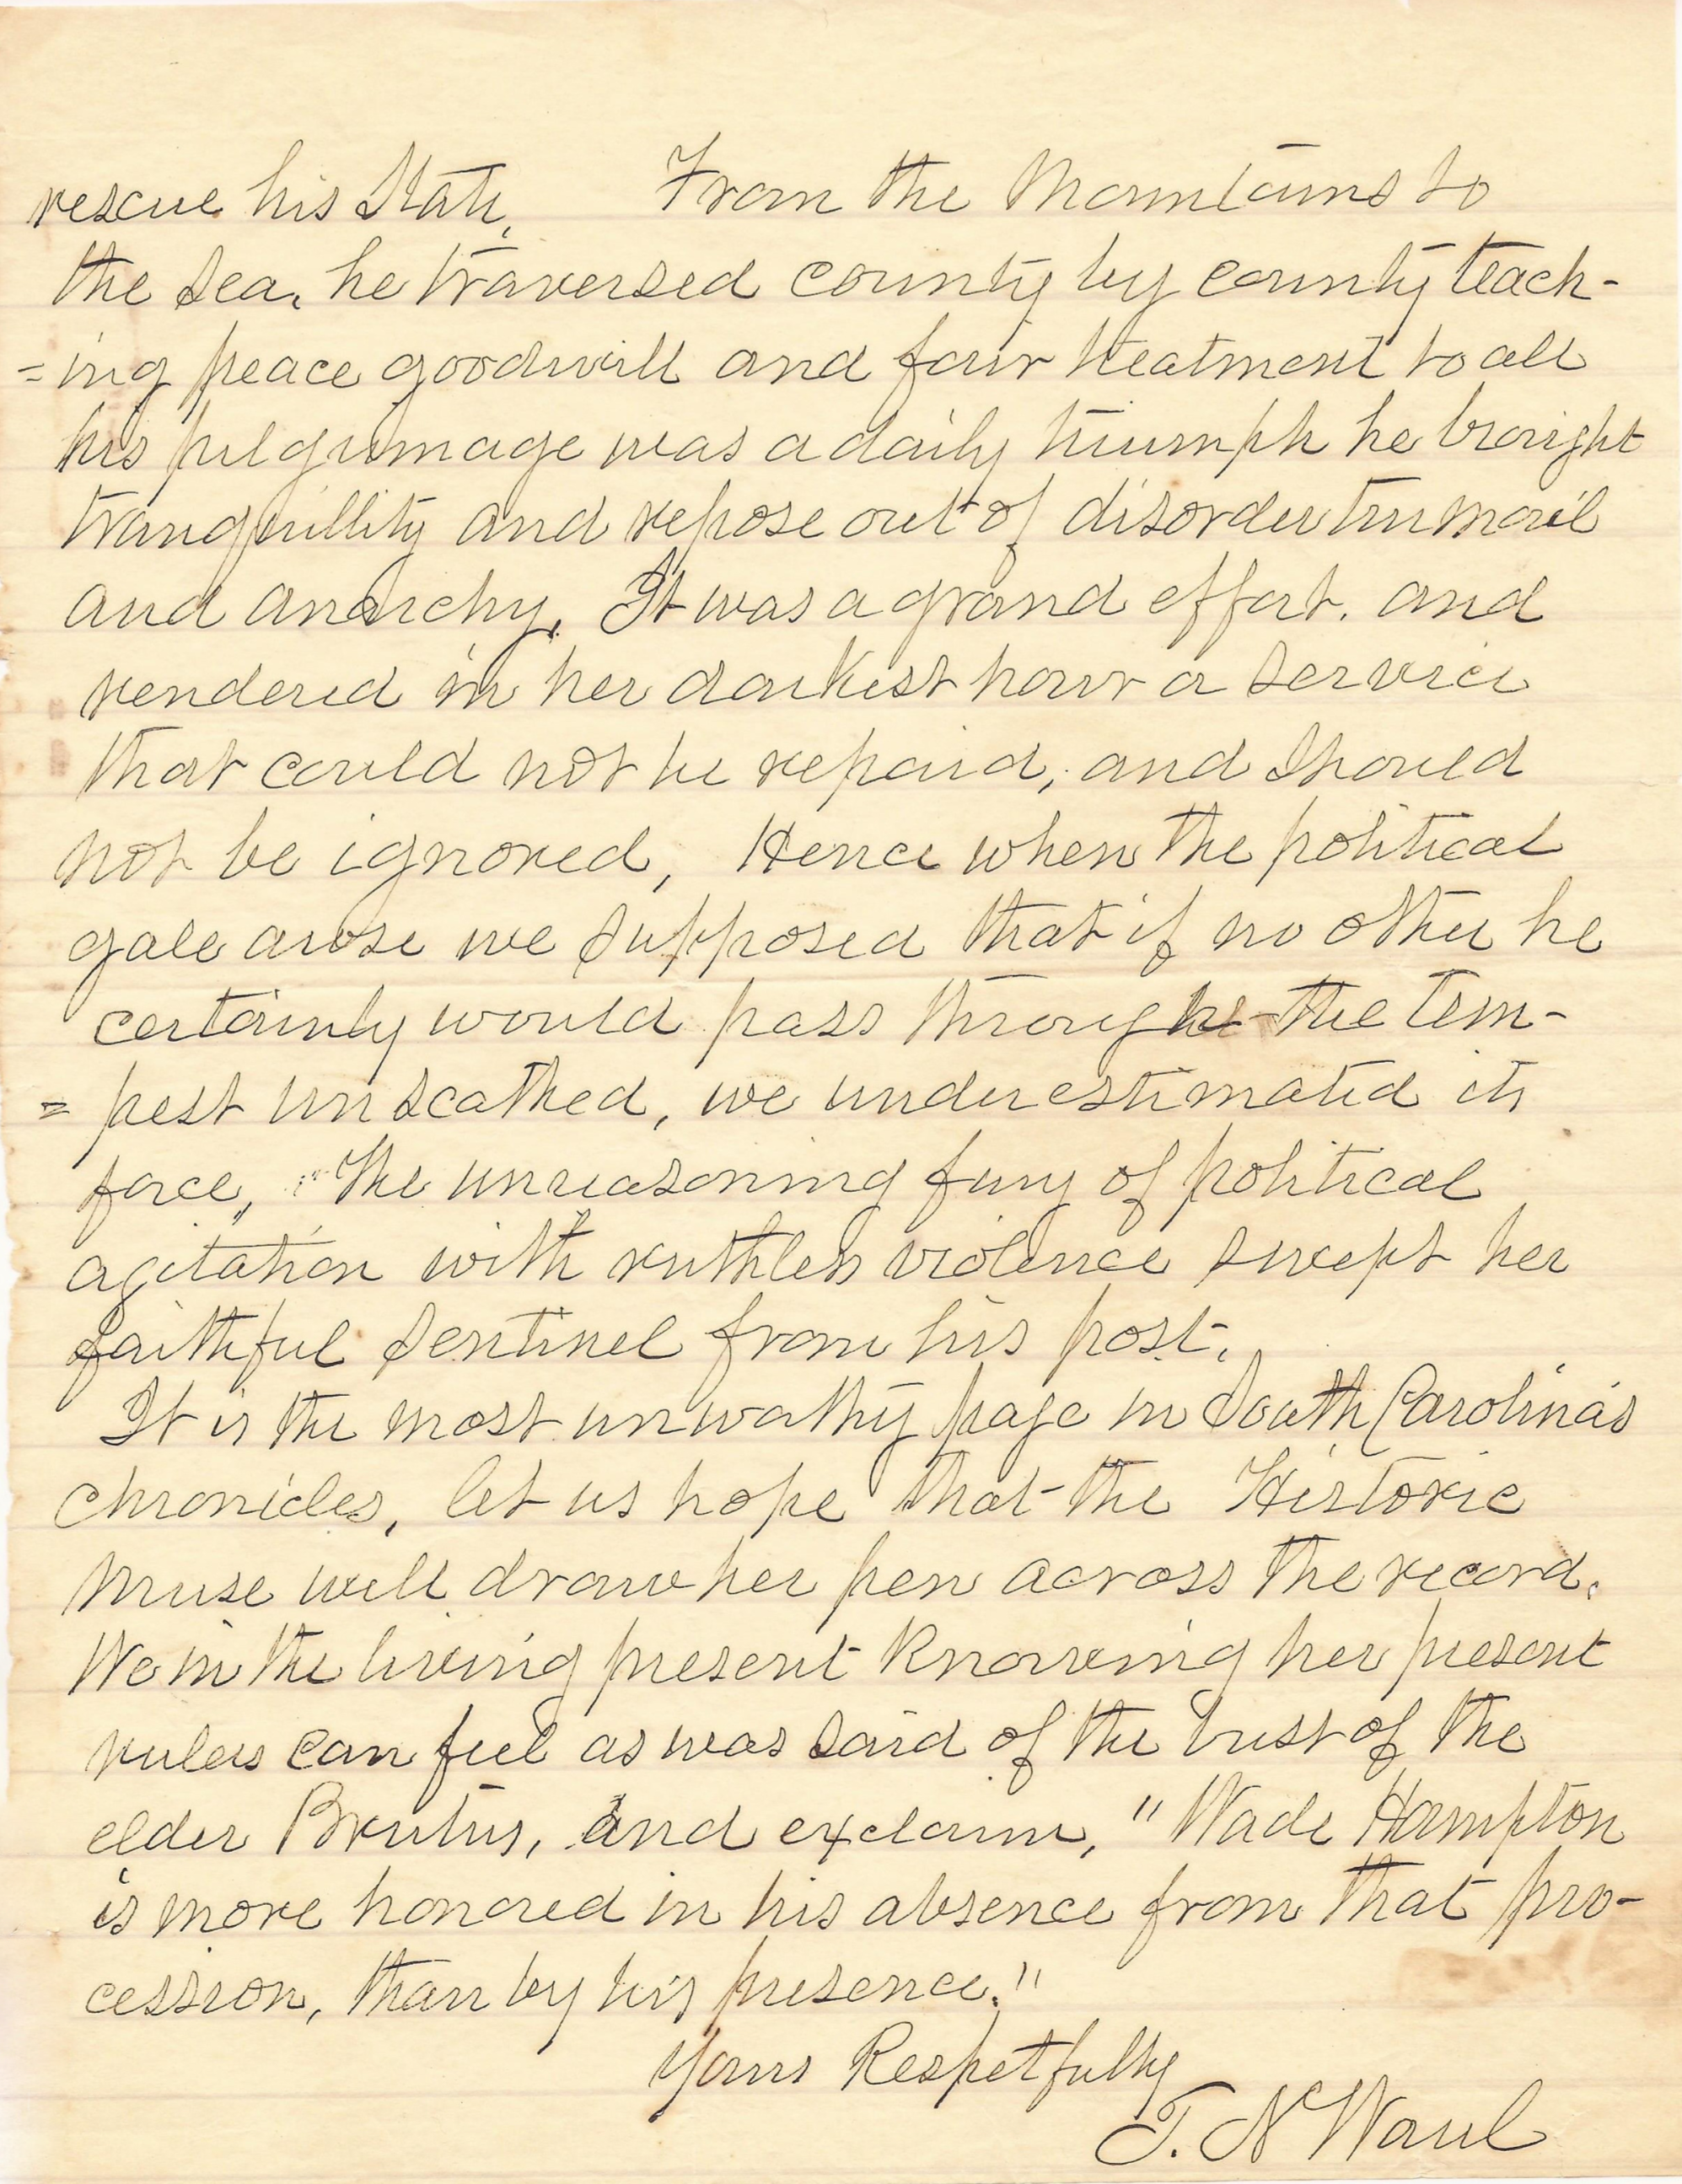 rescue his State, From the Mountains to
the Sea, he traversed county by county teach-
=ing peace goodwill and fair treatment to all
his pilgrimage was a daily triumph he brought
tranquillity and repose out of disorder turmoil
and anarchy, It was a grand effort. and
rendered in her darkest hour a service
that could not be repaid, and should
not be ignored, Hence when the political
gale arose we supposed that if no other he
certainly would pass through the tem-
= pest unscathed, we underestimated its
force, "The unreasoning fury of political
agitation with ruthless violence swept her
faithful Sentinel from his post.
It is the most unworthy page in South Carolina's
chronicles, let us hope that the Historic
Muse will draw her pen across the record.
We in the living present Knowing her present
rulers can feel as was said of the bust of the
elder Brutus, and exclaim, "Wade Hampton
is more honored in his absence from that pro-
cession, than by his presence."
Yours Respetfully
T. N Waul